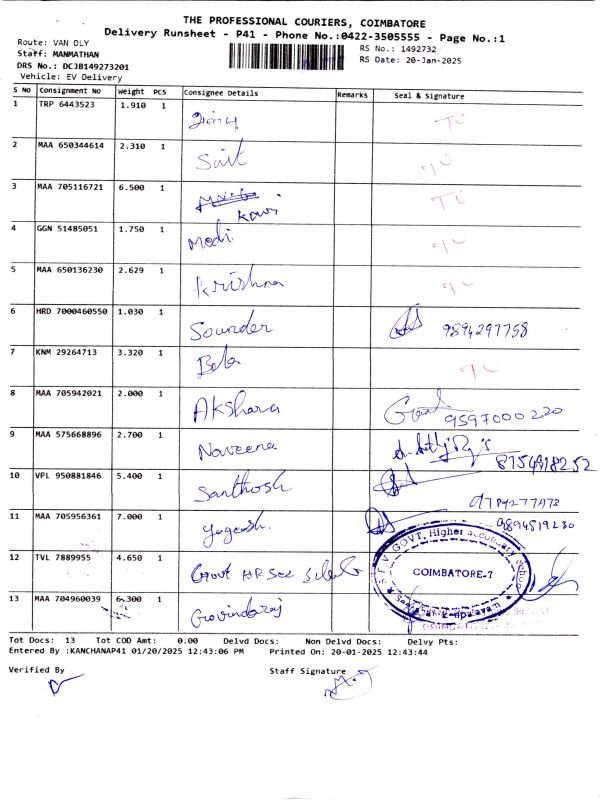 THE PROFESSIONAL COURIERS, COIMBATORE
Delivery Runsheet - P41 - Phone No.:0422-3505555 - Page No.:1
Route: VAN DLY
Staff: MANMATHAN
DRS No.: DCJB149273201
Vehicle: EV Delivery
RS No.: 1492732
RS Date: 20-Jan-2025
S No Consignment No Weight PCS Consignee Details Remarks Seal & Signature
1 TRP 6443523 1.910 1
2 MAA 650344614 2.310 1 Sait
3 MAA 705116721 6.500 1 Kawi
4 GGN 51485051 1.750 1 Modi
5 MAA 650136230 2.629 1 Krishna
6 HRD 7000460550 1.030 1 Sounder 9894297758
7 KNM 29264713 3.320 1 Bala
8 MAA 705942021 2.000 1 Akshara 9597000220
9 MAA 575668896 2.700 1 Naveena 8754918252
10 VPL 950881846 5.400 1 Santhosh
11 MAA 705956361 7.000 1 Yogesh. 9894519230
12 TVL 7889955 4.650 1 Govt HR Sec School
13 MAA 704960039 6.300 1 Govindaraj
GOVT. Higher Secondary School
COIMBATORE-7
Tot Docs: 13 Tot COD Amt: 0.00 Delvd Docs: Non Delvd Docs: Delvy Pts:
Entered By :KANCHANAP41 01/20/2025 12:43:06 PM Printed On: 20-01-2025 12:43:44
Verified By Staff Signature